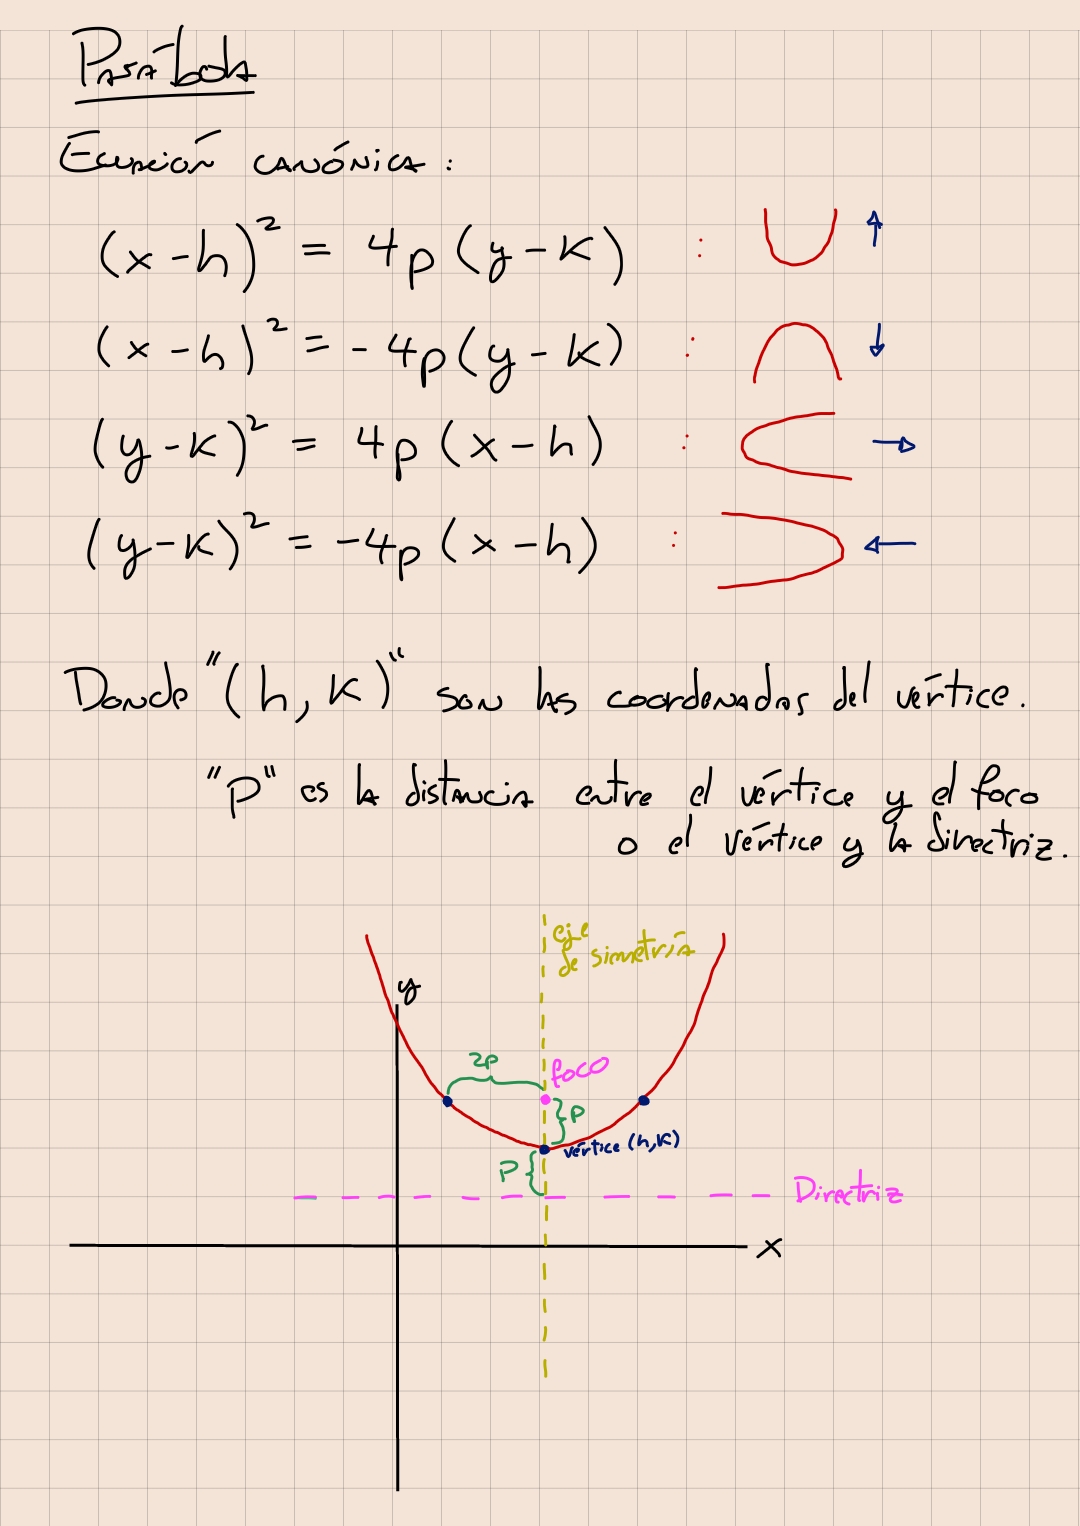 Parábola
Ecuación canónica:
(x-h)² = 4p(y-k) :
(x-h)² = -4p(y-k) :
(y-k)² = 4p(x-h) :
(y-k)² = -4p(x-h) :
Donde "(h, k)" son las coordenadas del vértice.
"p" es la distancia entre el vértice y el foco
o el vértice y la directriz.
eje
de simetría
y
2p
foco
p
vértice (h,k)
p
Directriz
x